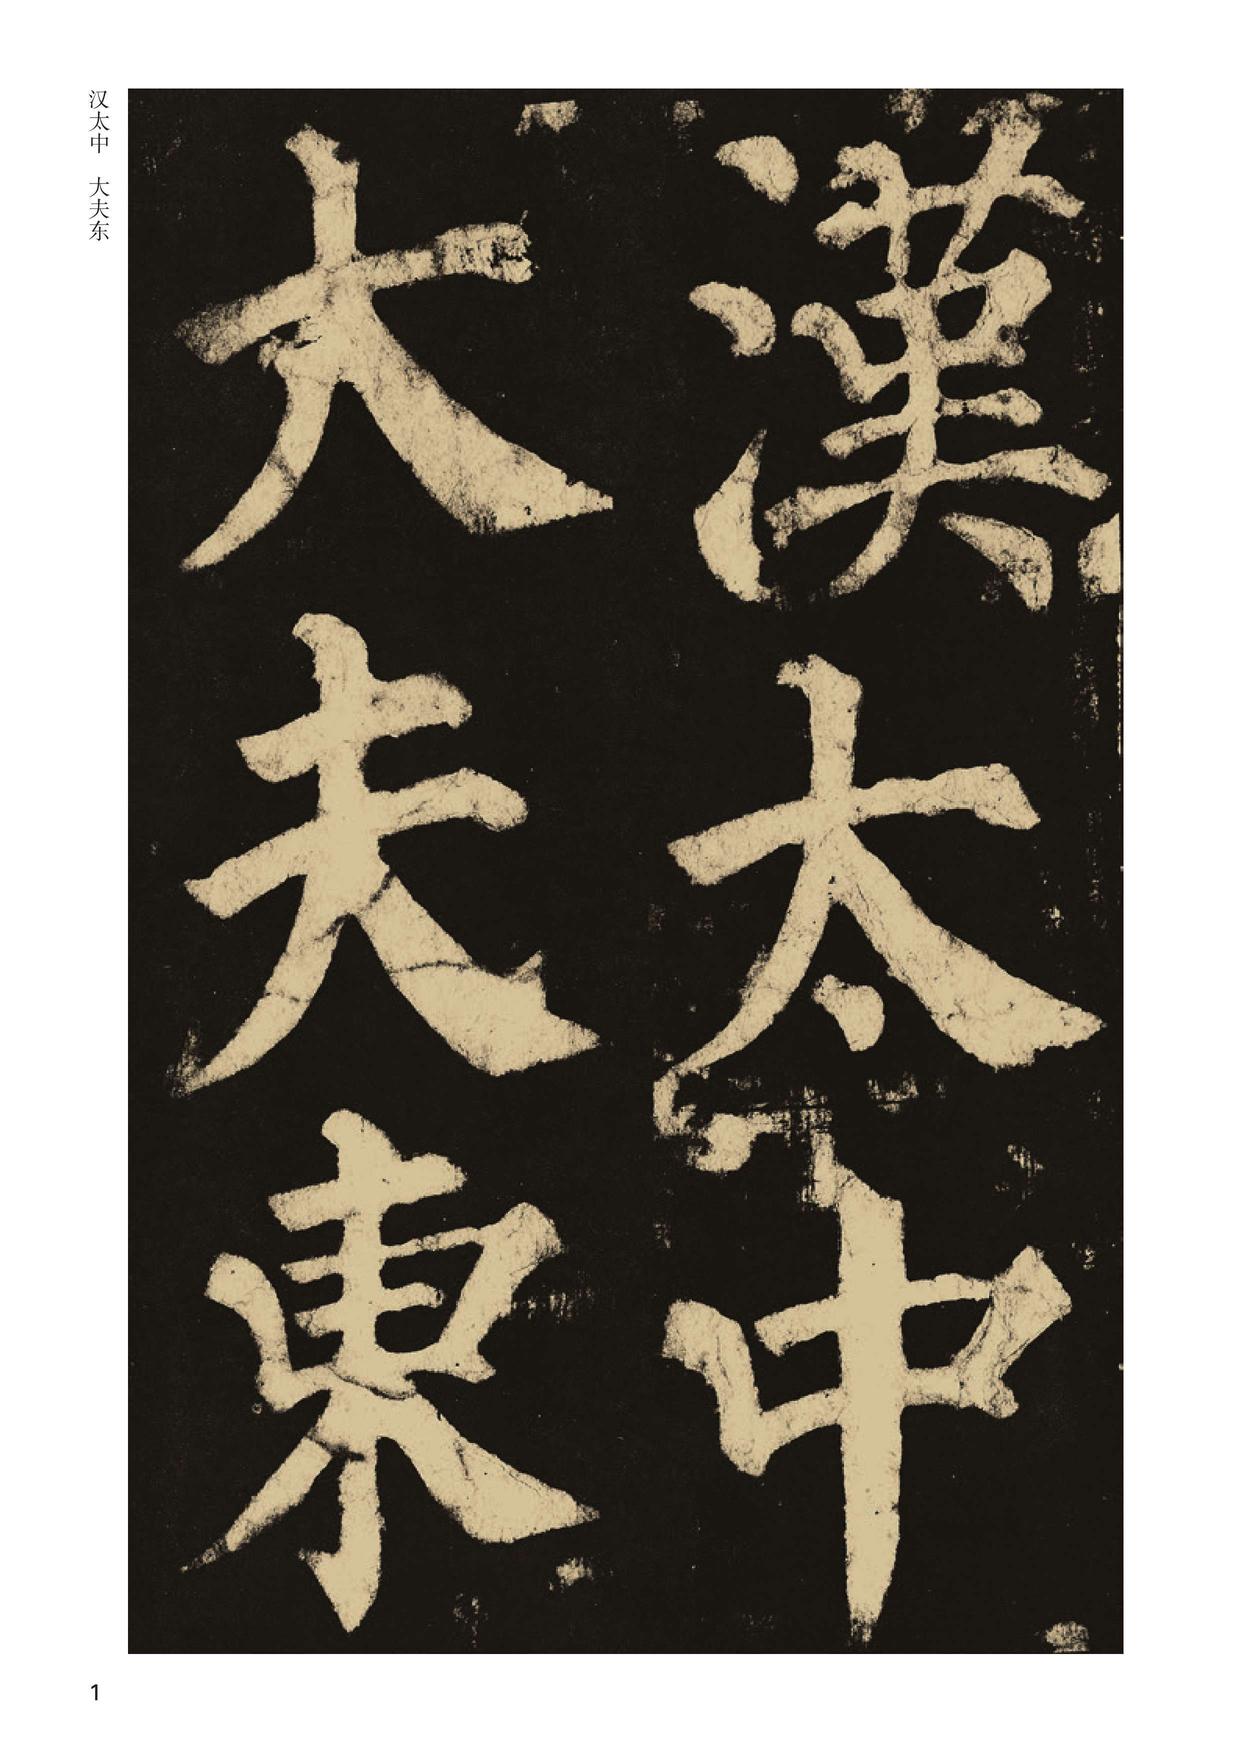 漢太中
大夫東
汉太中 大夫东
1